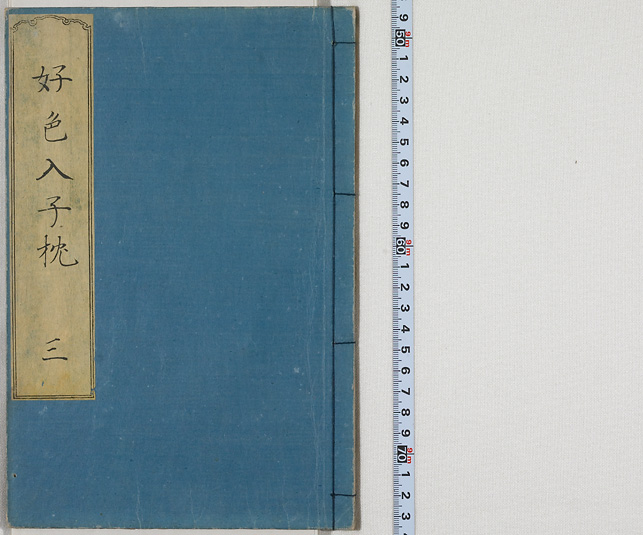 好色入子枕 三
9
50 9m
1
2
3
4
5
6
7
8
9
60 9m
1
2
3
4
5
6
7
8
9
70 9m
1
2
3